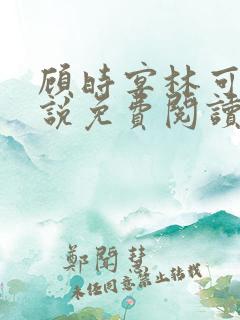 顾时宴林可
說免費閱讀
鄭聞慧
未经同意禁止转载